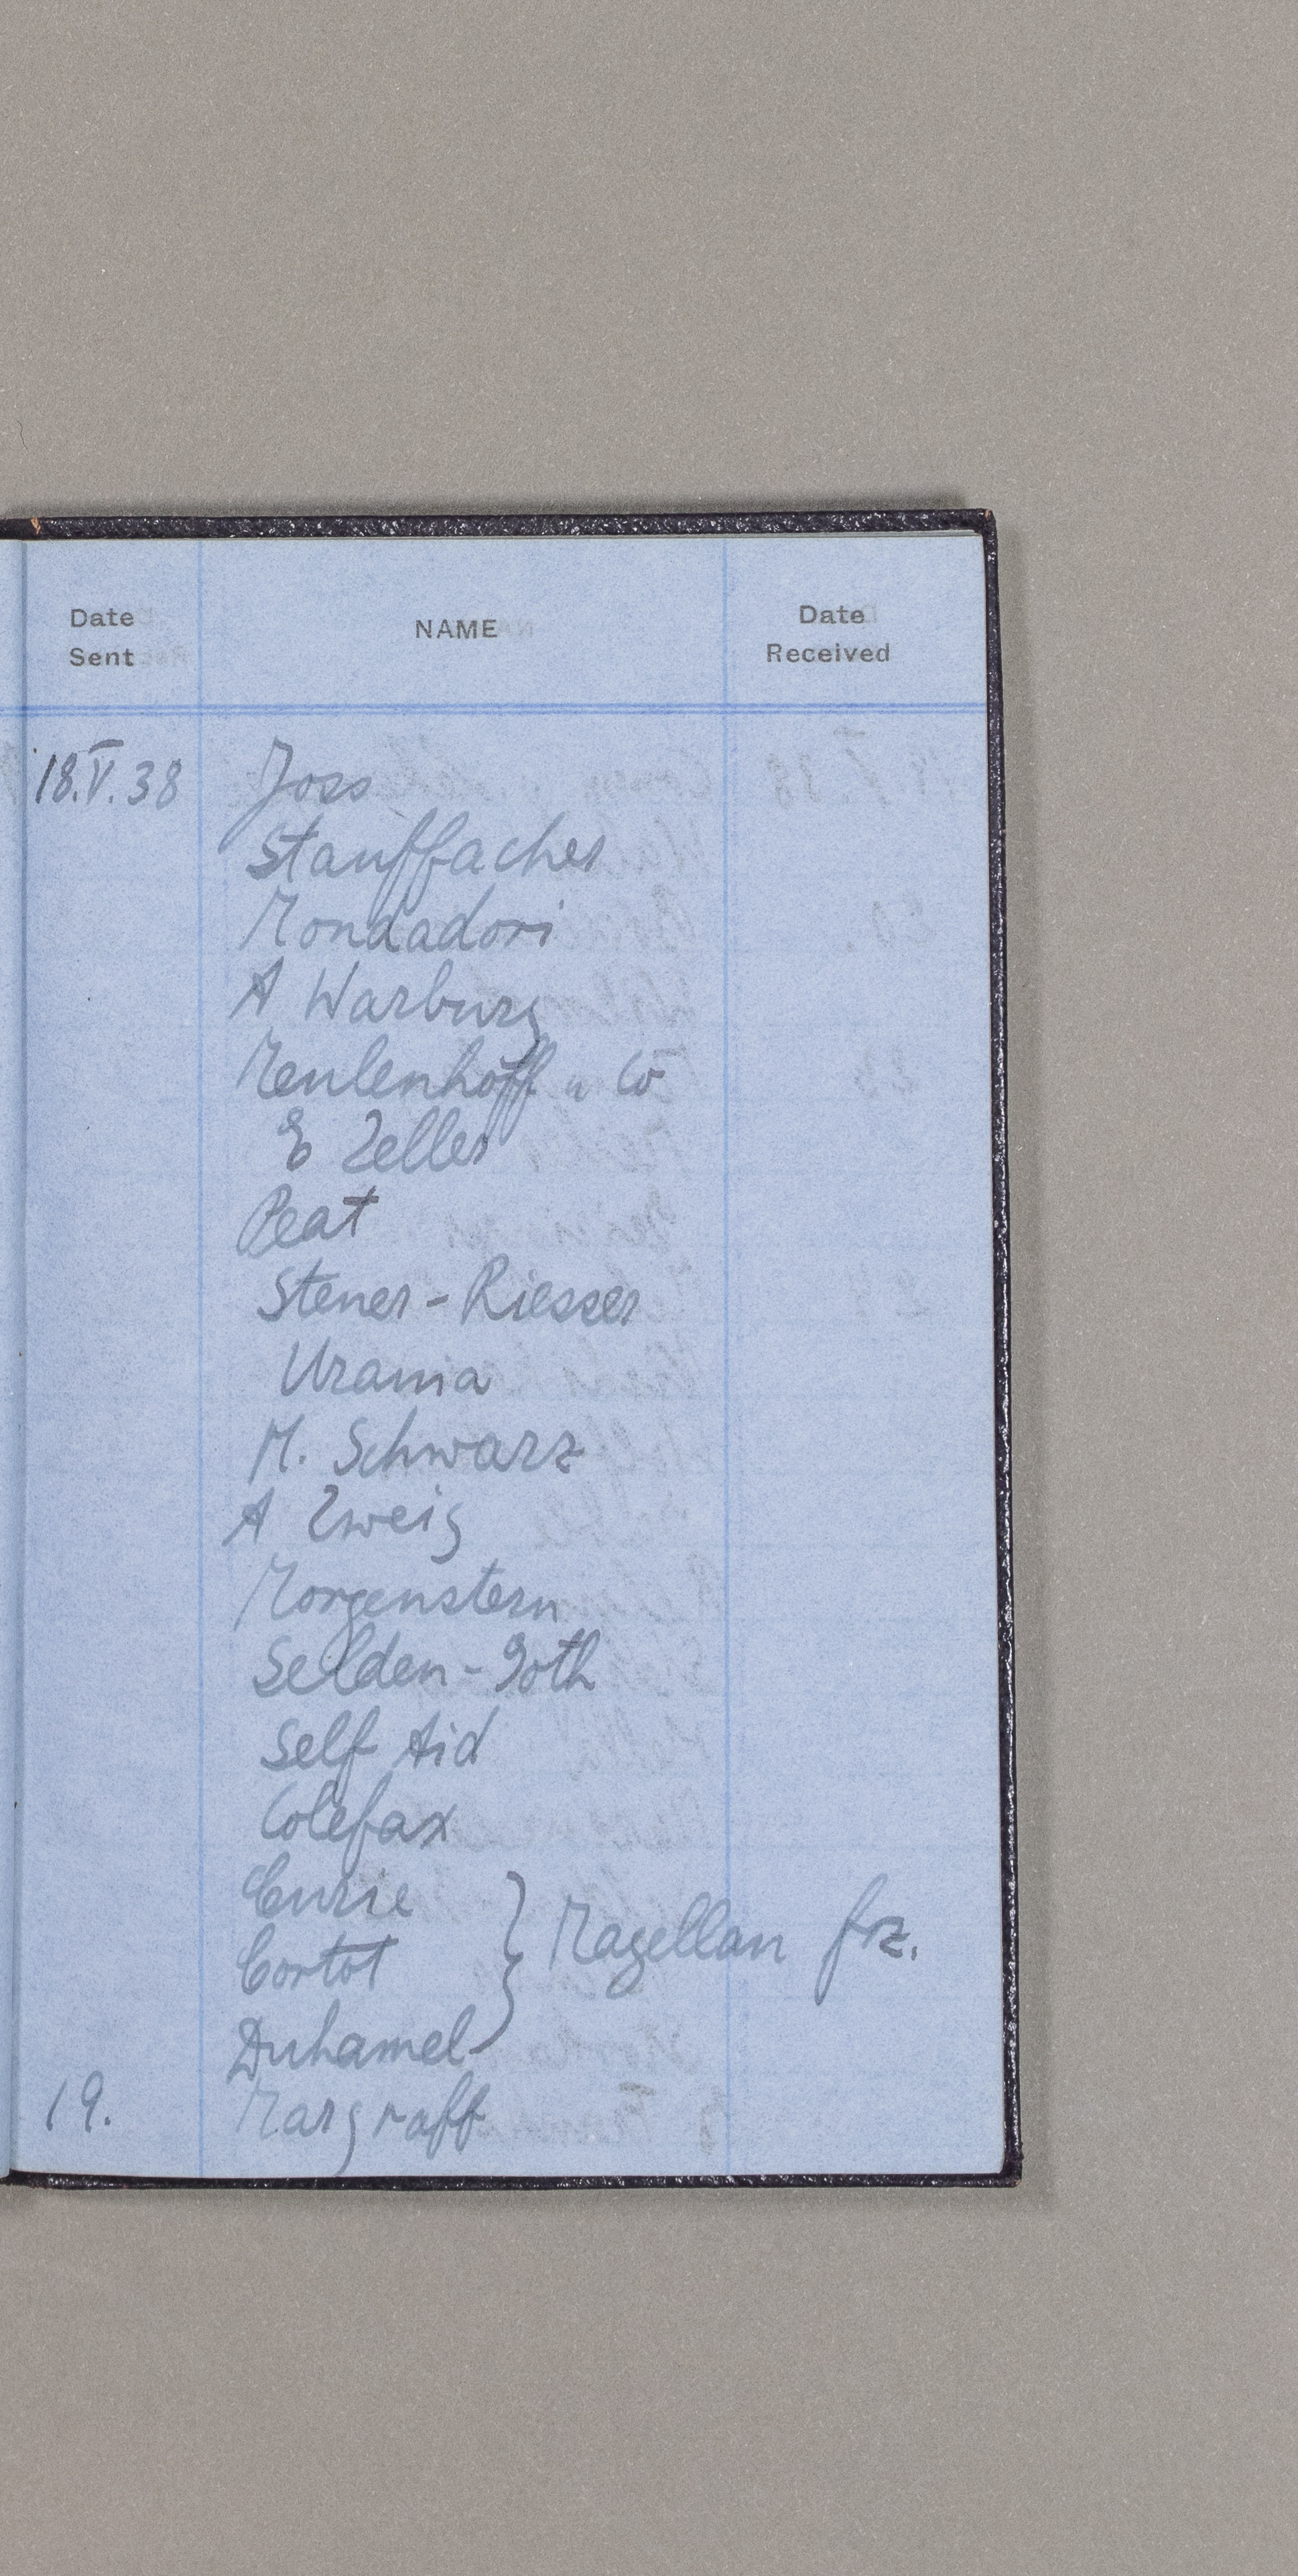 Date Sent NAME Date Received
18.V.38 Joss
Stauffacher
Mondadori
A Warburg
Meulenhoff u Co
E Zeller
Peat
Stener-Riesser
Urania
M. Schwarz
A Zweig
Morgenstern
Selden-Goth
Self Aid
Colefax
Curie
Cortot } Magellan frz.
Duhamel
19. Margraff